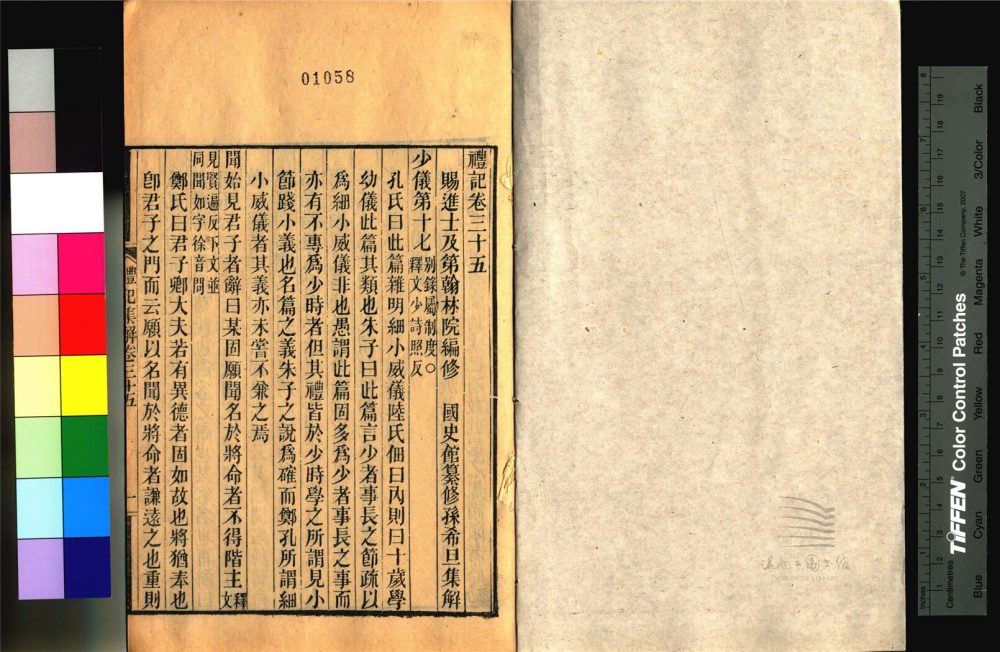 01058
禮記卷三十五
賜進士及第翰林院編修 國史館纂修孫希旦集解
少儀第十七別錄屬制度○釋文少詩照反
孔氏曰此篇雜明細小威儀陸氏佃曰內則曰十歲學
幼儀此篇其類也朱子曰此篇言少者事長之節疏以
為細小威儀非也愚謂此篇固多為少者事長之事而
亦有不專為少時者但其禮皆於少時學之所謂見小
節踐小義也名篇之義朱子之說為確而鄭孔所謂細
小威儀者其義亦未嘗不兼之焉
聞始見君子者辭曰某固願聞名於將命者不得階主釋文
見賢遍反下文並同聞如字徐音問
鄭氏曰君子卿大夫若有異德者固如故也將猶奉也
卽君子之門而云願以名聞於將命者謙遠之也重則
禮記集解卷三十五
一
瀋陽市圖書館
SHENYANG LIBRARY
TIFFEN Color Control Patches
© The Tiffen Company, 2007
Inches
Centimetres
Blue
Cyan
Green
Yellow
Red
Magenta
White
3/Color
Black